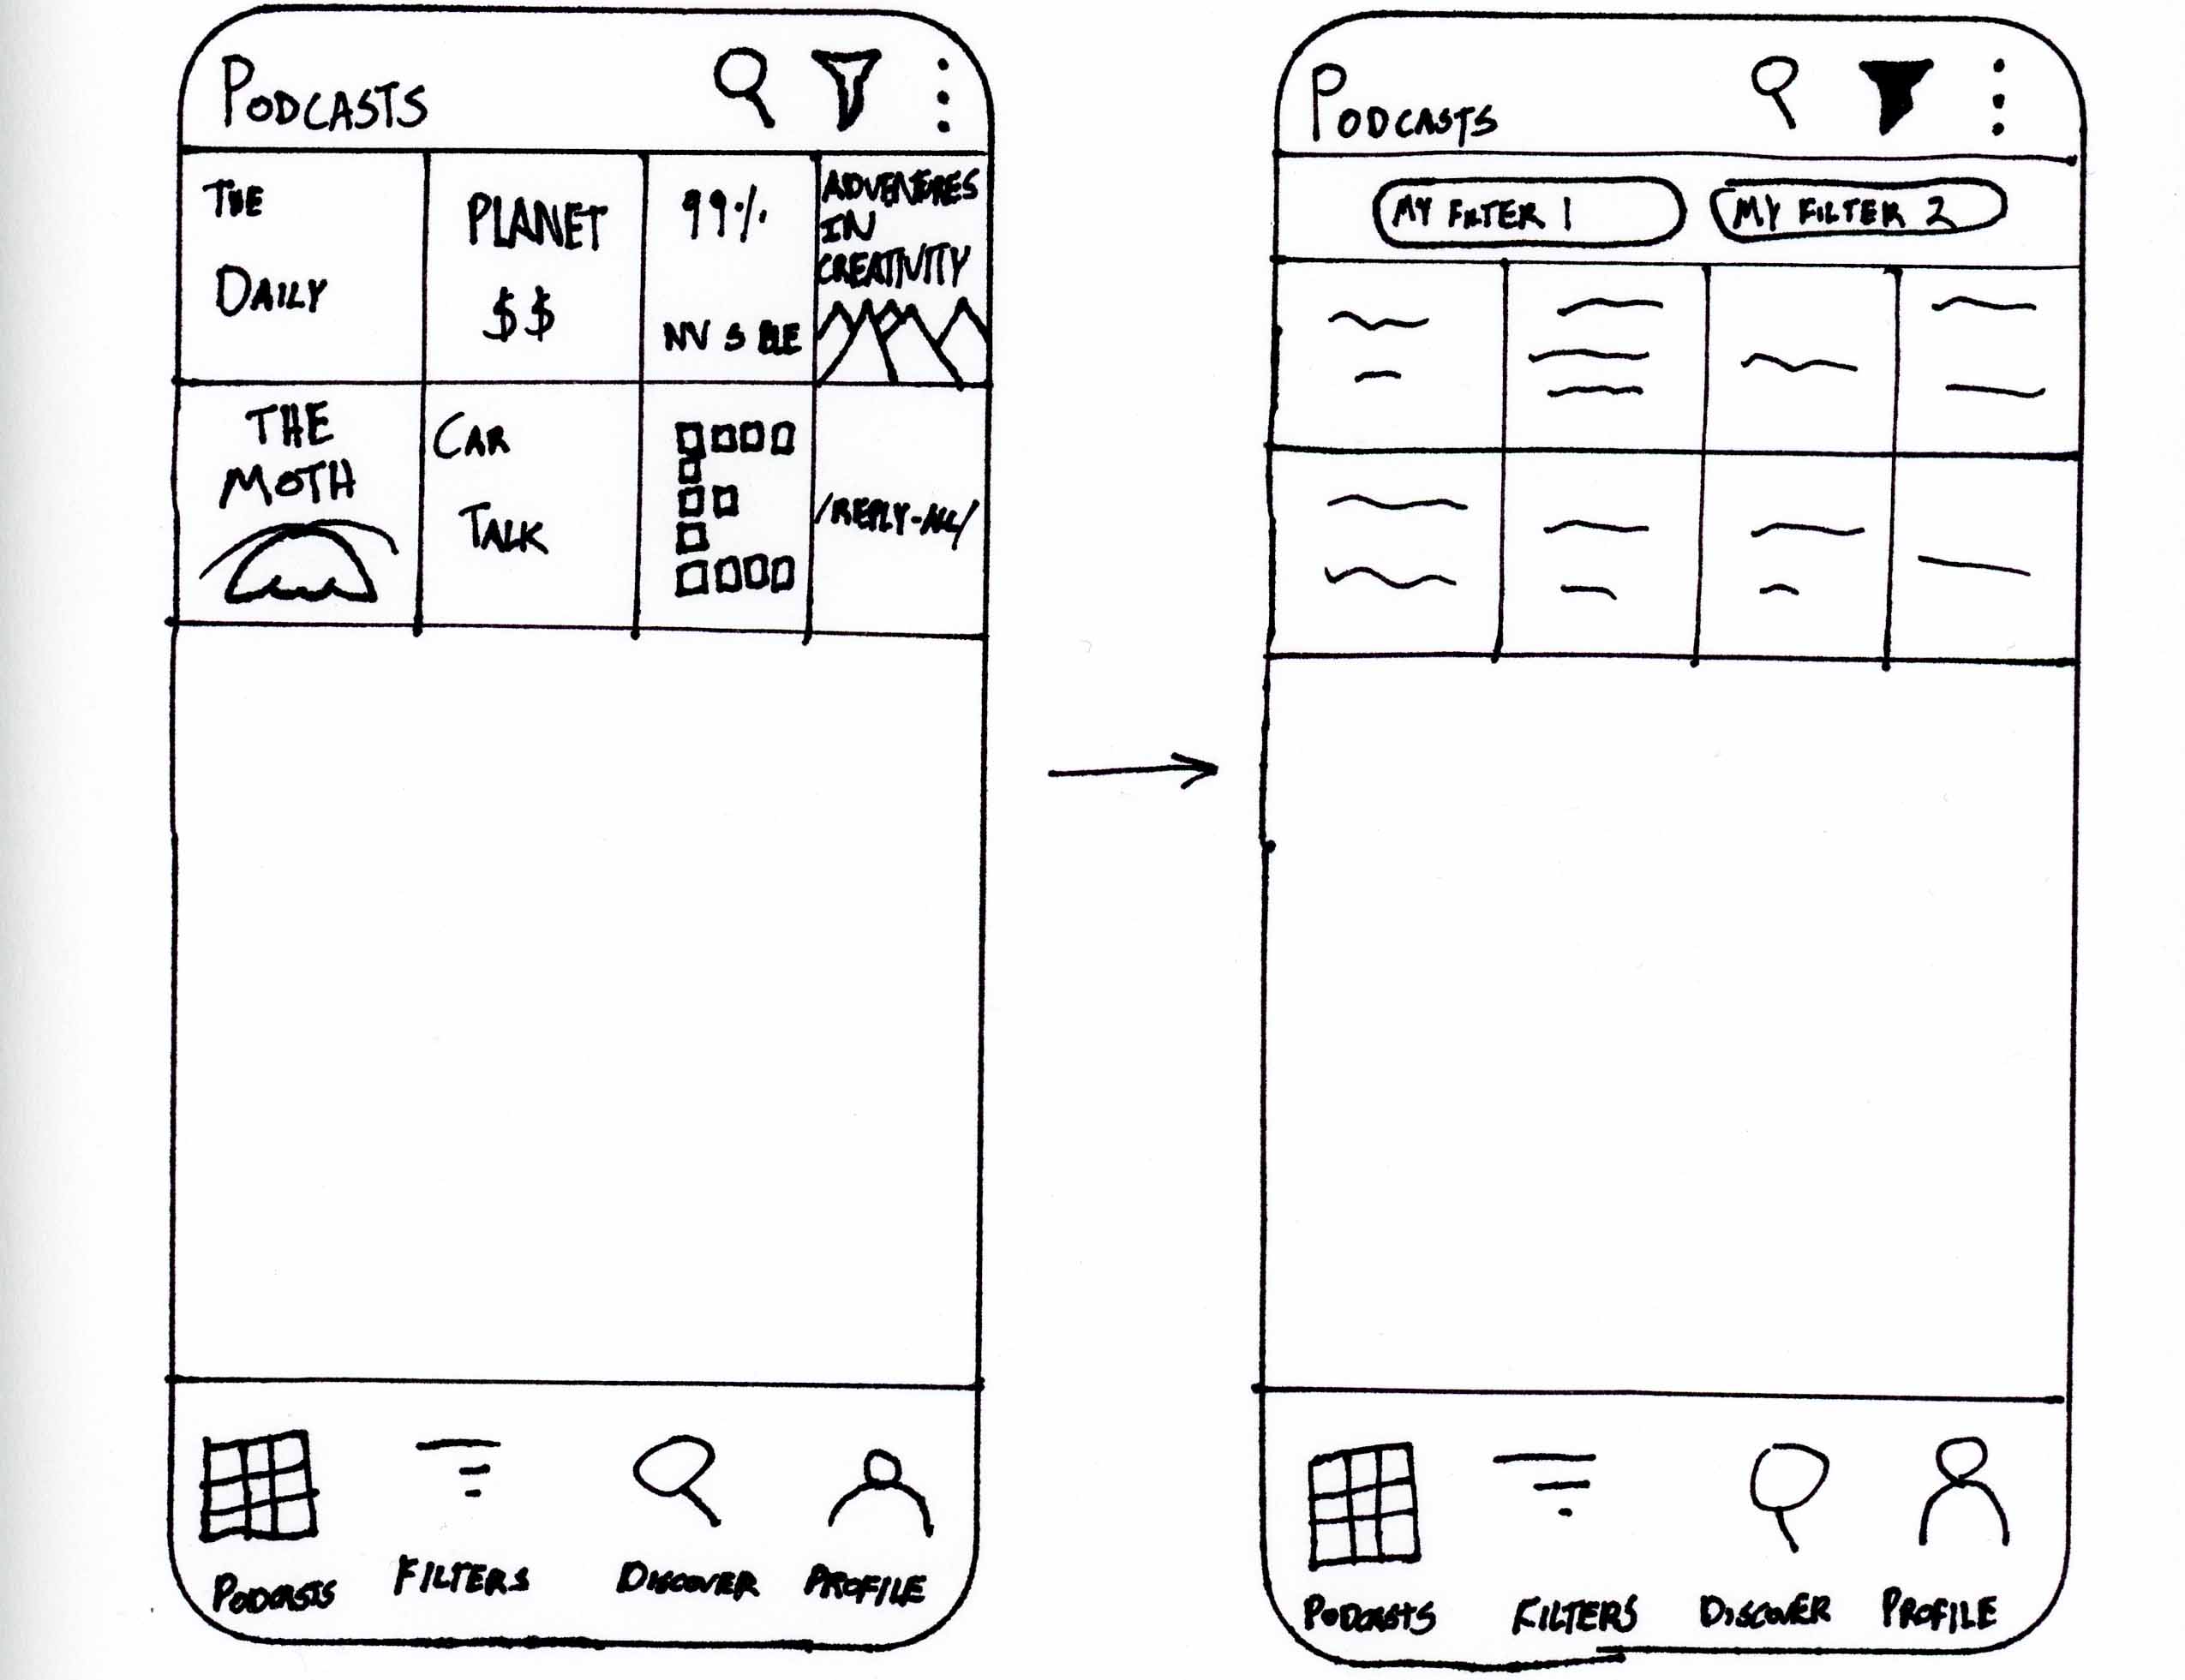 PODCASTS
THE
DAILY
PLANET
$$
99%
NV S BLE
ADVENTURES
IN
CREATIVITY
THE
MOTH
CAR
TALK
/REPLY-ALL/
PODCASTS
FILTERS
DISCOVER
PROFILE
PODCASTS
MY FILTER 1
MY FILTER 2
PODCASTS
FILTERS
DISCOVER
PROFILE